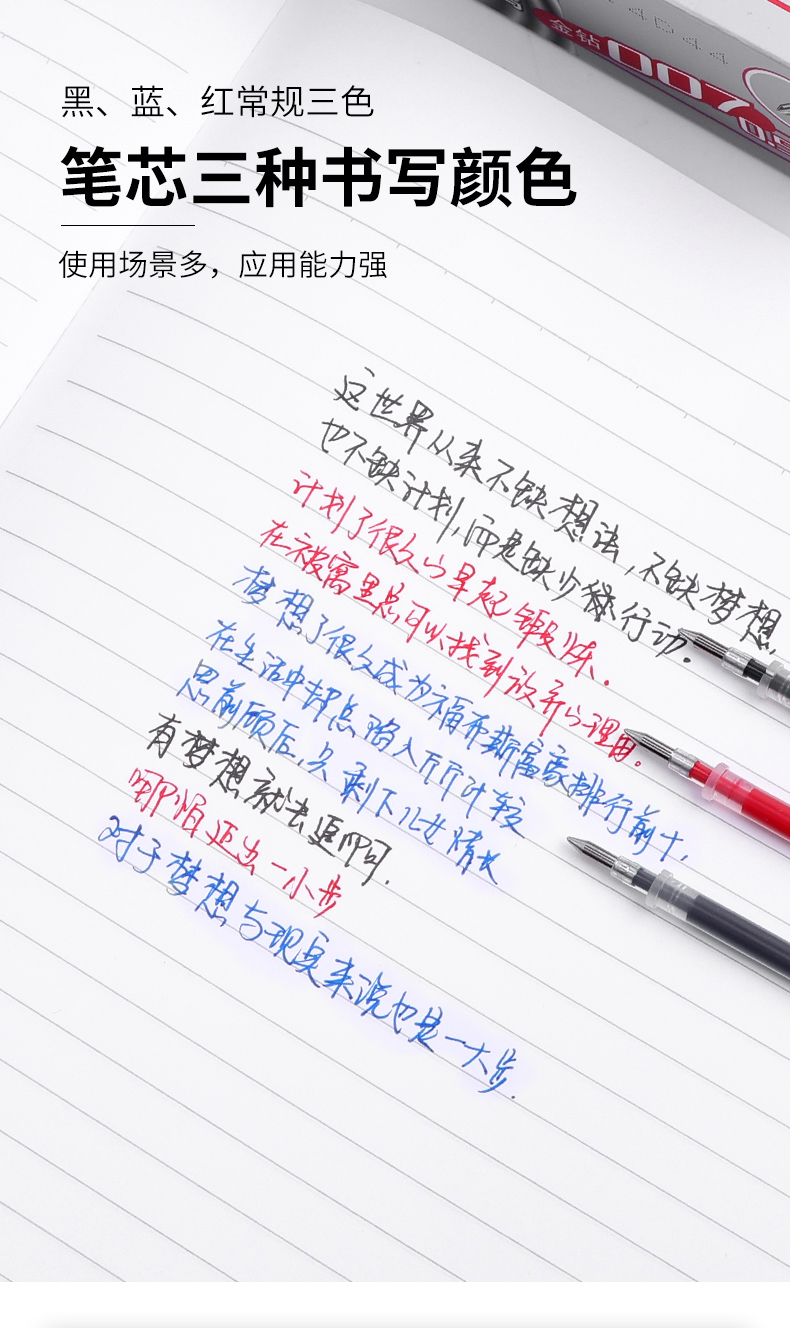 金钻
007
黑、蓝、红常规三色
笔芯三种书写颜色
使用场景多，应用能力强
这世界从来不缺想法,不缺梦想,
也不缺计划,而是缺少行动.
计划了很久的早起锻炼.
在被窝里总可以找到放弃的理由.
梦想了很久成为福布斯富豪排行前十,
在生活中却总陷入斤斤计较
思前顾后,只剩下儿女情长
有梦想就去追啊.
哪怕迈出一小步
对于梦想与现实来说也是一大步.